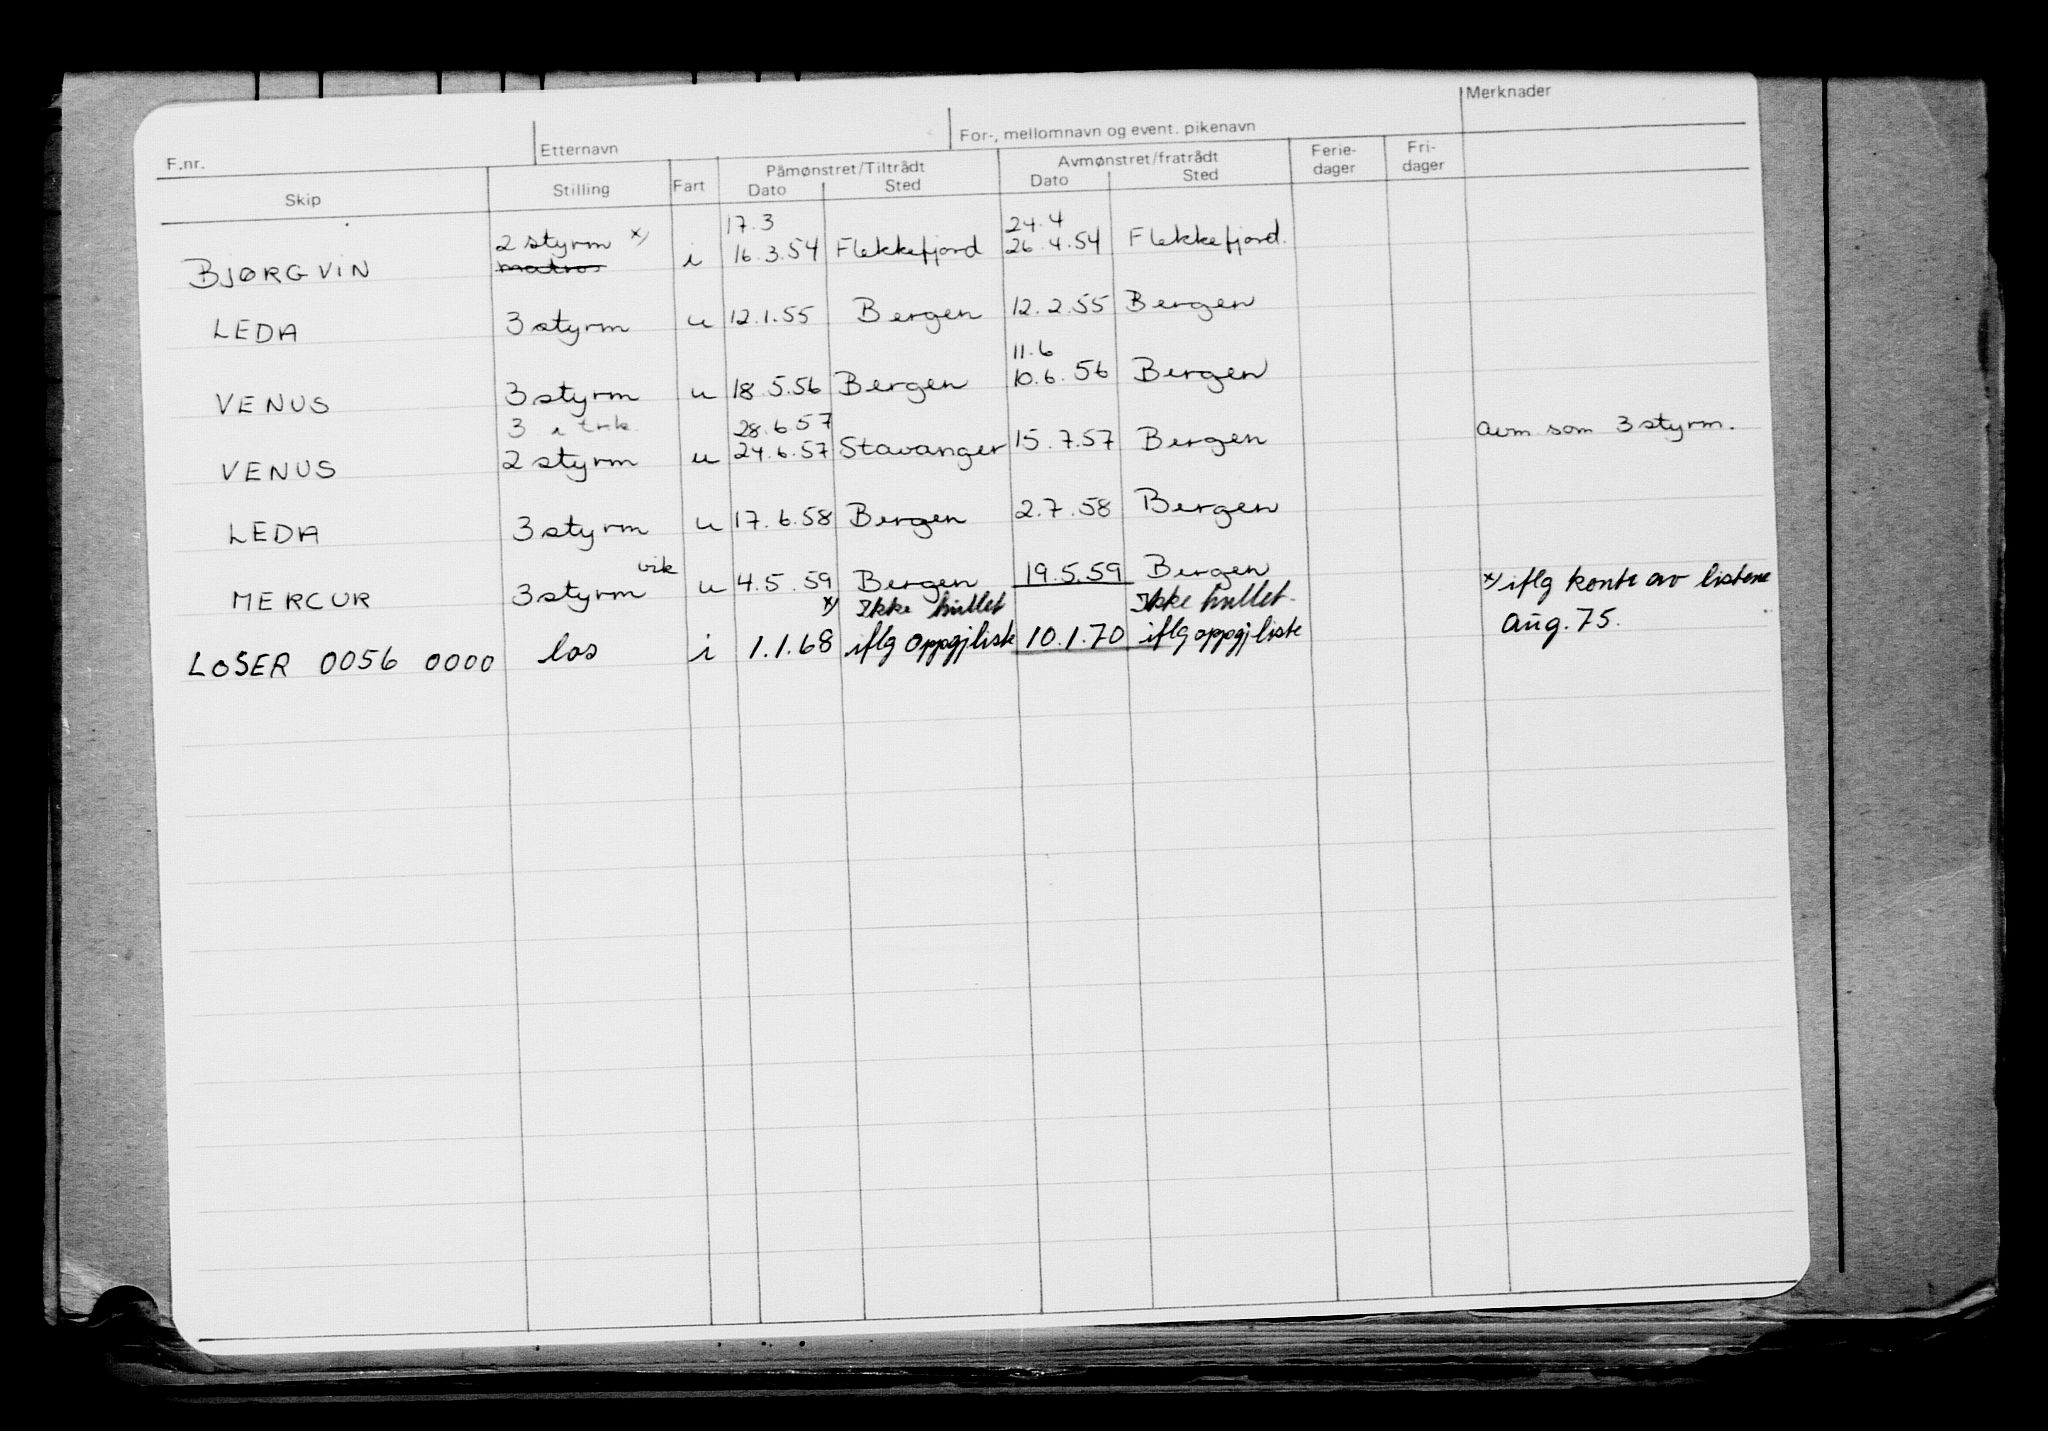 F.nr. Etternavn For-, mellomnavn og event. pikenavn Merknader
Skip Stilling Fart Påmønstret/Tiltrådt Avmønstret/fratrådt Ferie- Fri-
Dato Sted Dato Sted dager dager
17.3 24.4
2 styrm x)
BJØRGVIN matros i 16.3.54 Flekkefjord 26.4.54 Flekkefjord.
LEDA 3 styrm u 12.1.55 Bergen 12.2.55 Bergen
11.6
VENUS 3 styrm u 18.5.56 Bergen 10.6.56 Bergen
3 i 28.6.57
VENUS 2 styrm u 24.6.57 Stavanger 15.7.57 Bergen avm som 3 styrm.
LEDA 3 styrm u 17.6.58 Bergen 2.7.58 Bergen
vik
MERCUR 3 styrm u 4.5.59 Bergen 19.5.59 Bergen x) iflg kontr av listene
x) Ikke hullet Ikke hullet aug. 75.
LOSER 0056 0000 los i 1.1.68 iflg oppgjliste 10.1.70 iflg oppgjliste